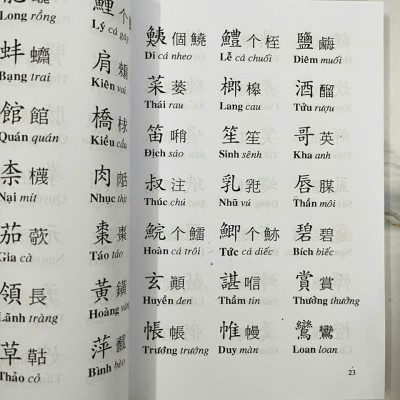 Long rồng
鯉 个
Lý cá gáy
蚌
Bạng trai
肩
Kiên vai
館 館
Quán quán
橋 梂
Kiều cầu
柰 櫗
Nại mít
肉
Nhục thịt
茄
Gia cà
棗 棗
Táo táo
領 長
Lãnh tràng
黃
Hoàng vàng
草
Thảo cỏ
萍
Bình bèo
個
Di cá nheo
鱧 个 桎
Lễ cá chuối
鹽
Diêm muối
菜 蒌
Thái rau
榔 槔
Lang cau
酒
Tửu rượu
笛 哨
Địch sáo
笙 笙
Sinh sênh
哥 英
Kha anh
叔 注
Thúc chú
乳
Nhũ vú
唇
Thần môi
鯇 个
Hoàn cá trôi
鯽 个
Tức cá diếc
碧 碧
Bích biếc
玄
Huyền đen
諶
Thầm tin
賞 賞
Thưởng thưởng
帳 帳
Trướng trướng
帷 幔
Duy màn
鸞 鸞
Loan loan
23